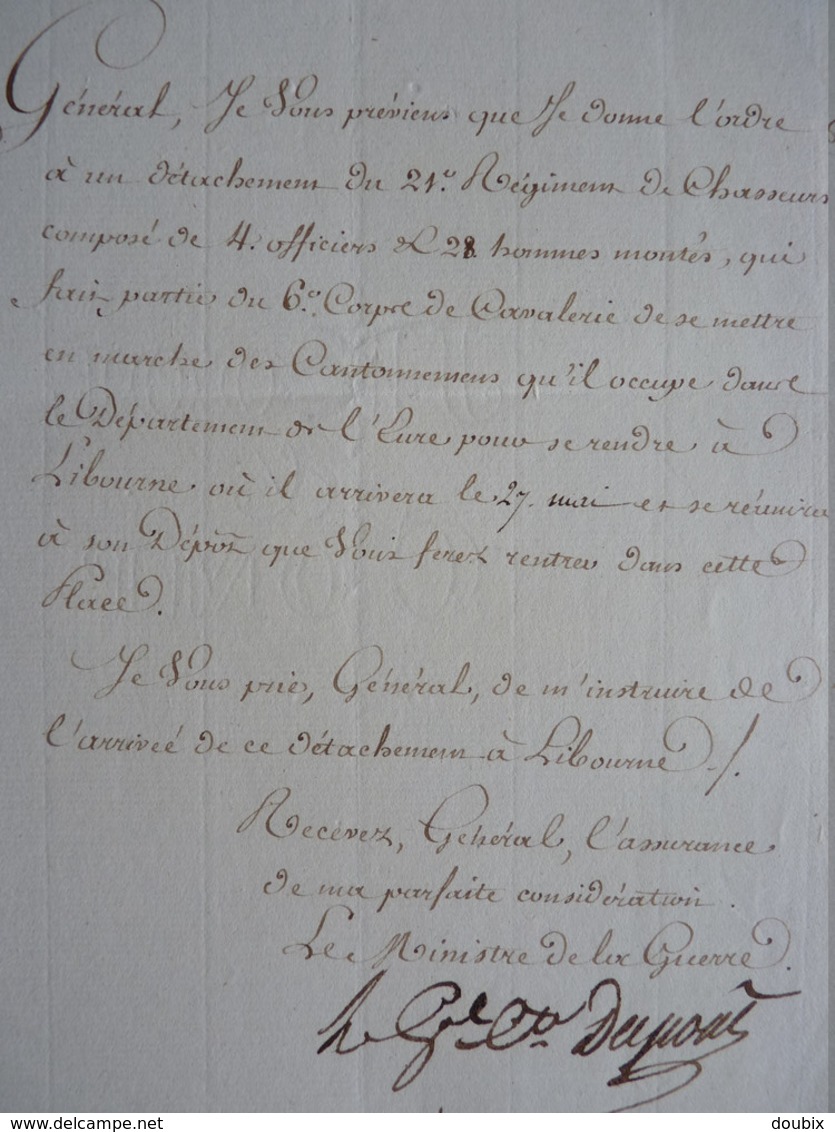 Général, Je Vous préviens que Je donne l'ordre
à un détachement du 21.e Régiment de Chasseurs
composé de 4. officiers et 28. hommes montés, qui
fait partie du 6.e Corps de Cavalerie de se mettre
en marche des Cantonnemens qu'il occupe dans
le Département de l'Eure pour se rendre à
Libourne où il arrivera le 27. mai et se réunira
à son Dépôt que Vous ferez rentrer dans cette
Place.
Je Vous prie, Général, de m'instruire de
l'arrivée de ce détachement à Libourne ./.
Recevez, Général, l'assurance
de ma parfaite considération.
Le Ministre de la Guerre.
le Gal Cte Dupont
www.delcampe.net
doubix